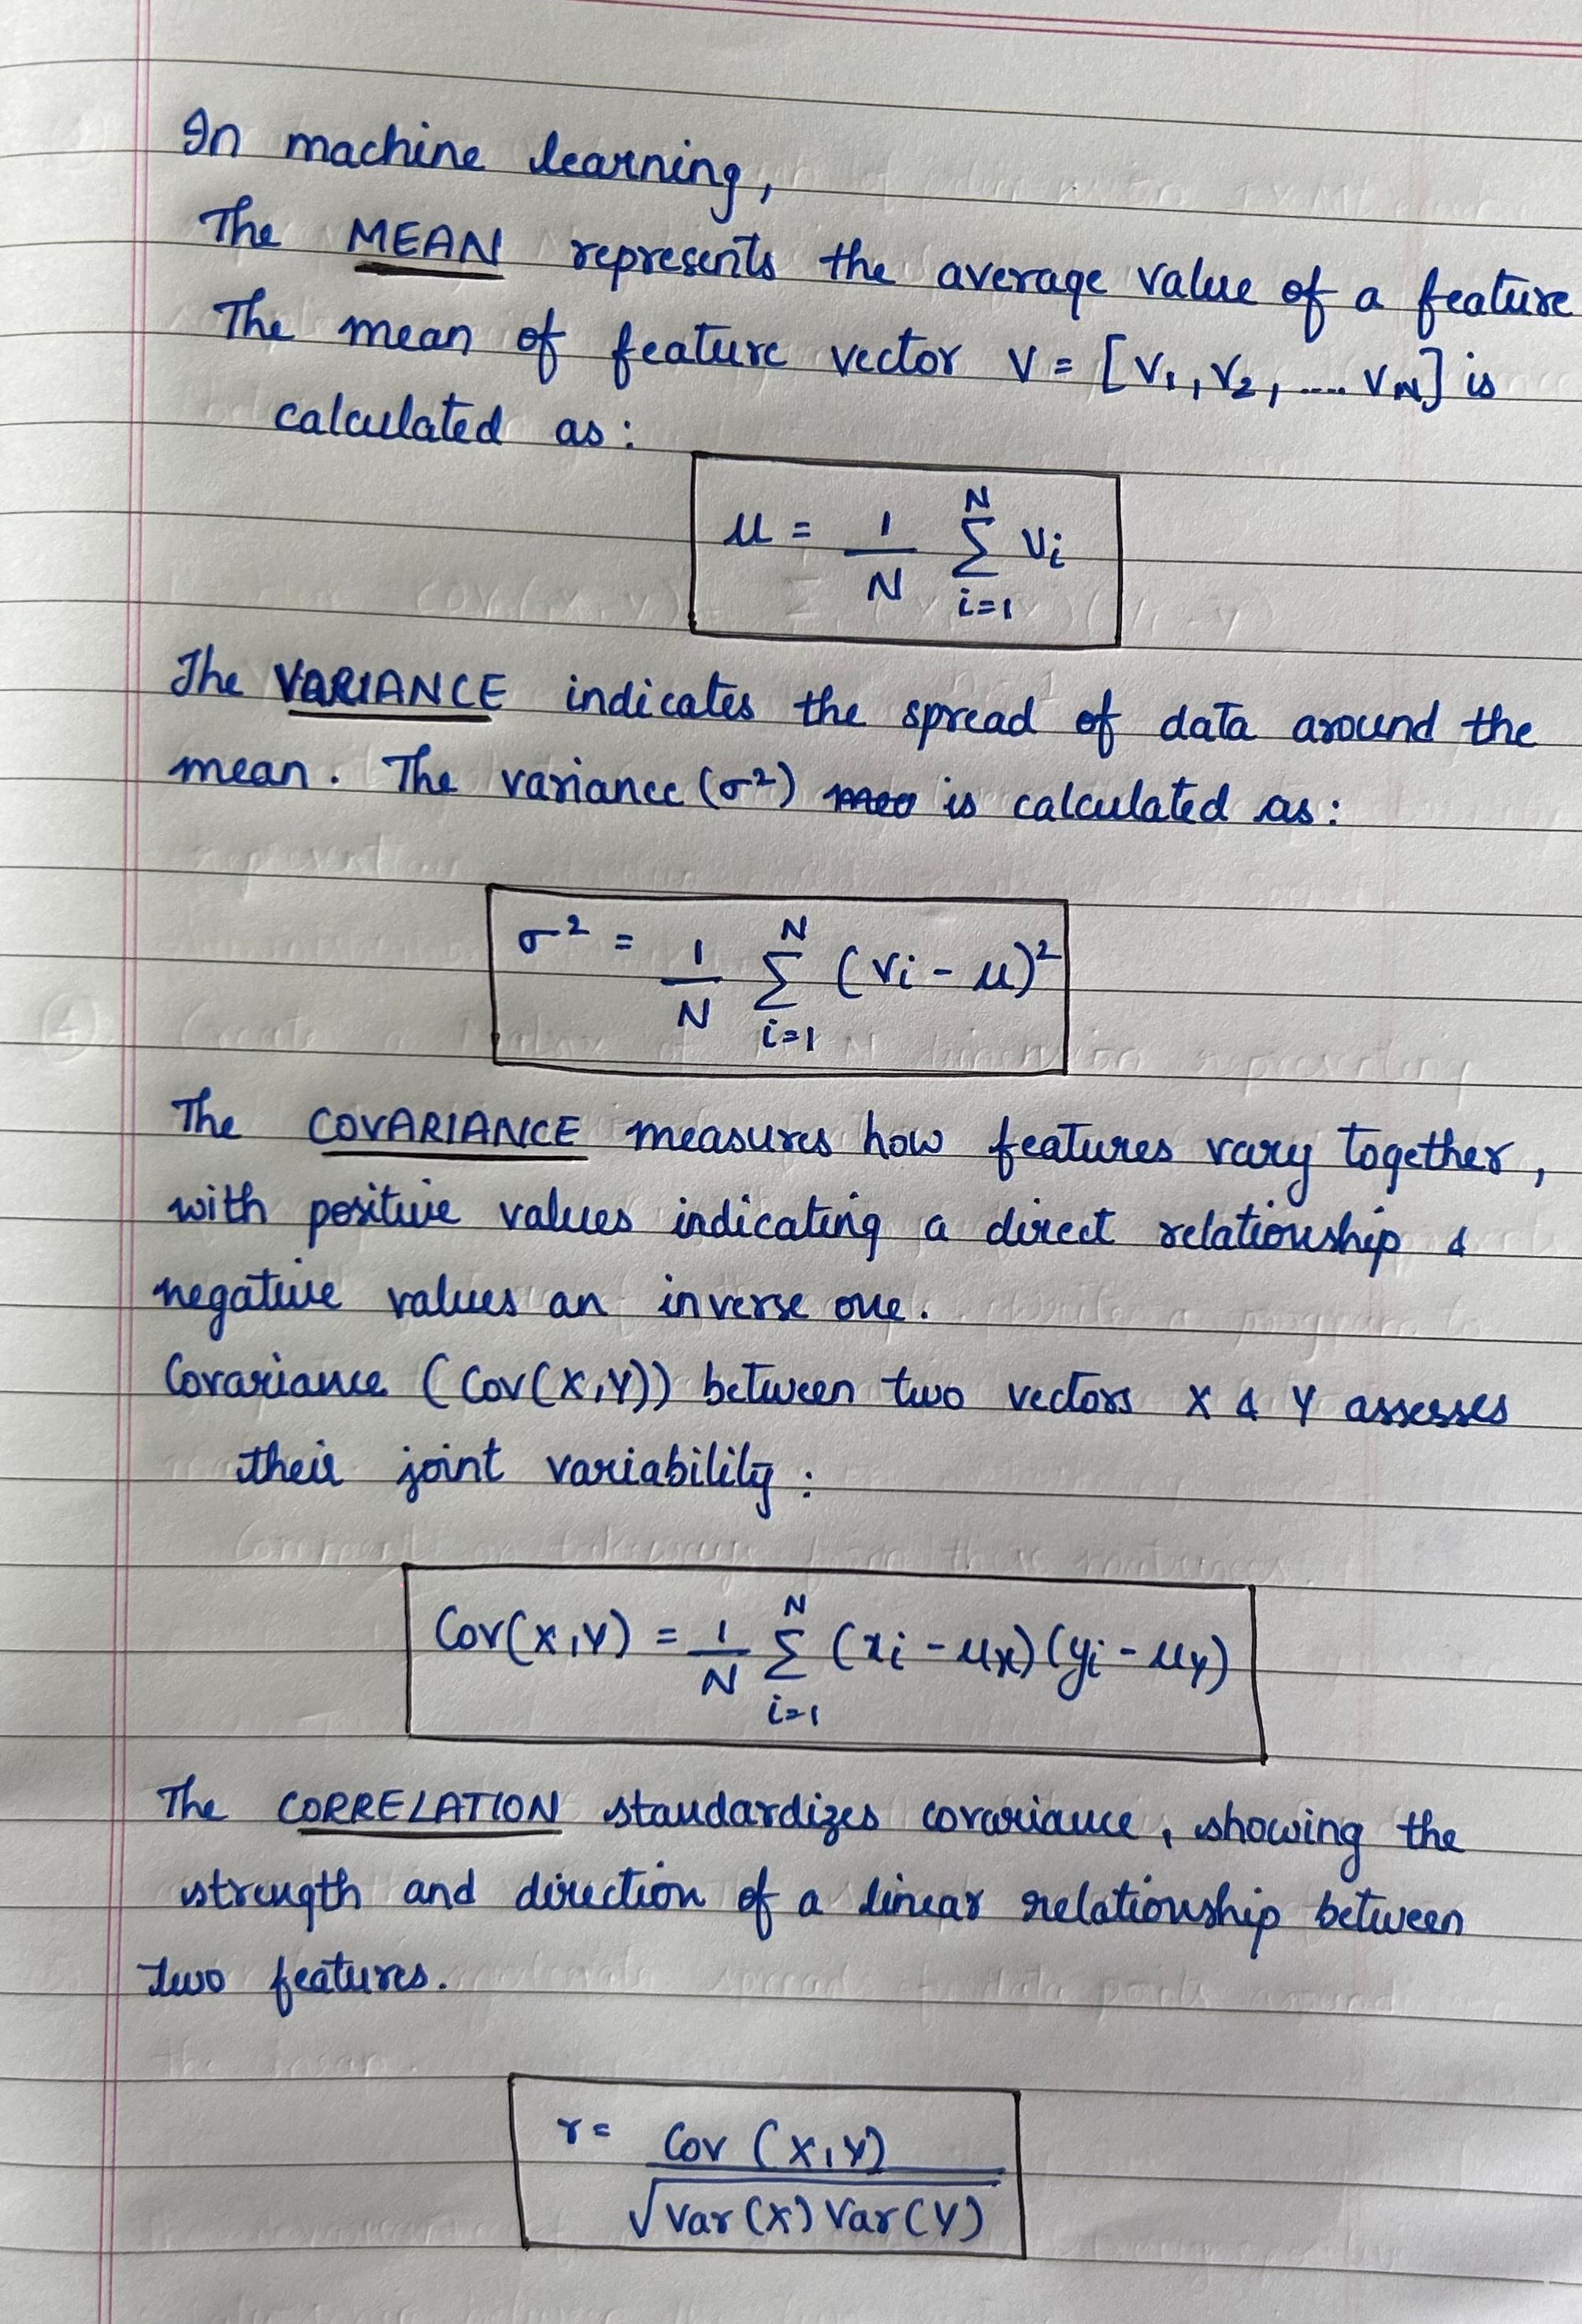 In machine learning,
The MEAN represents the average value of a feature
The mean of feature vector V = [V₁, V₂, .... V_N] is
calculated as:
μ = 1/N Σ_{i=1}^{N} Vi
The VARIANCE indicates the spread of data around the
mean. The variance (σ²) is calculated as:
σ² = 1/N Σ_{i=1}^{N} (Vi - μ)²
The COVARIANCE measures how features vary together,
with positive values indicating a direct relationship &
negative values an inverse one.
Covariance (Cov(X,Y)) between two vectors X & Y assesses
their joint variability:
Cov(X,Y) = 1/N Σ_{i=1}^{N} (xi - μx)(yi - μy)
The CORRELATION standardizes covariance, showing the
strength and direction of a linear relationship between
two features.
r = Cov (X,Y) / √Var(X) Var(Y)